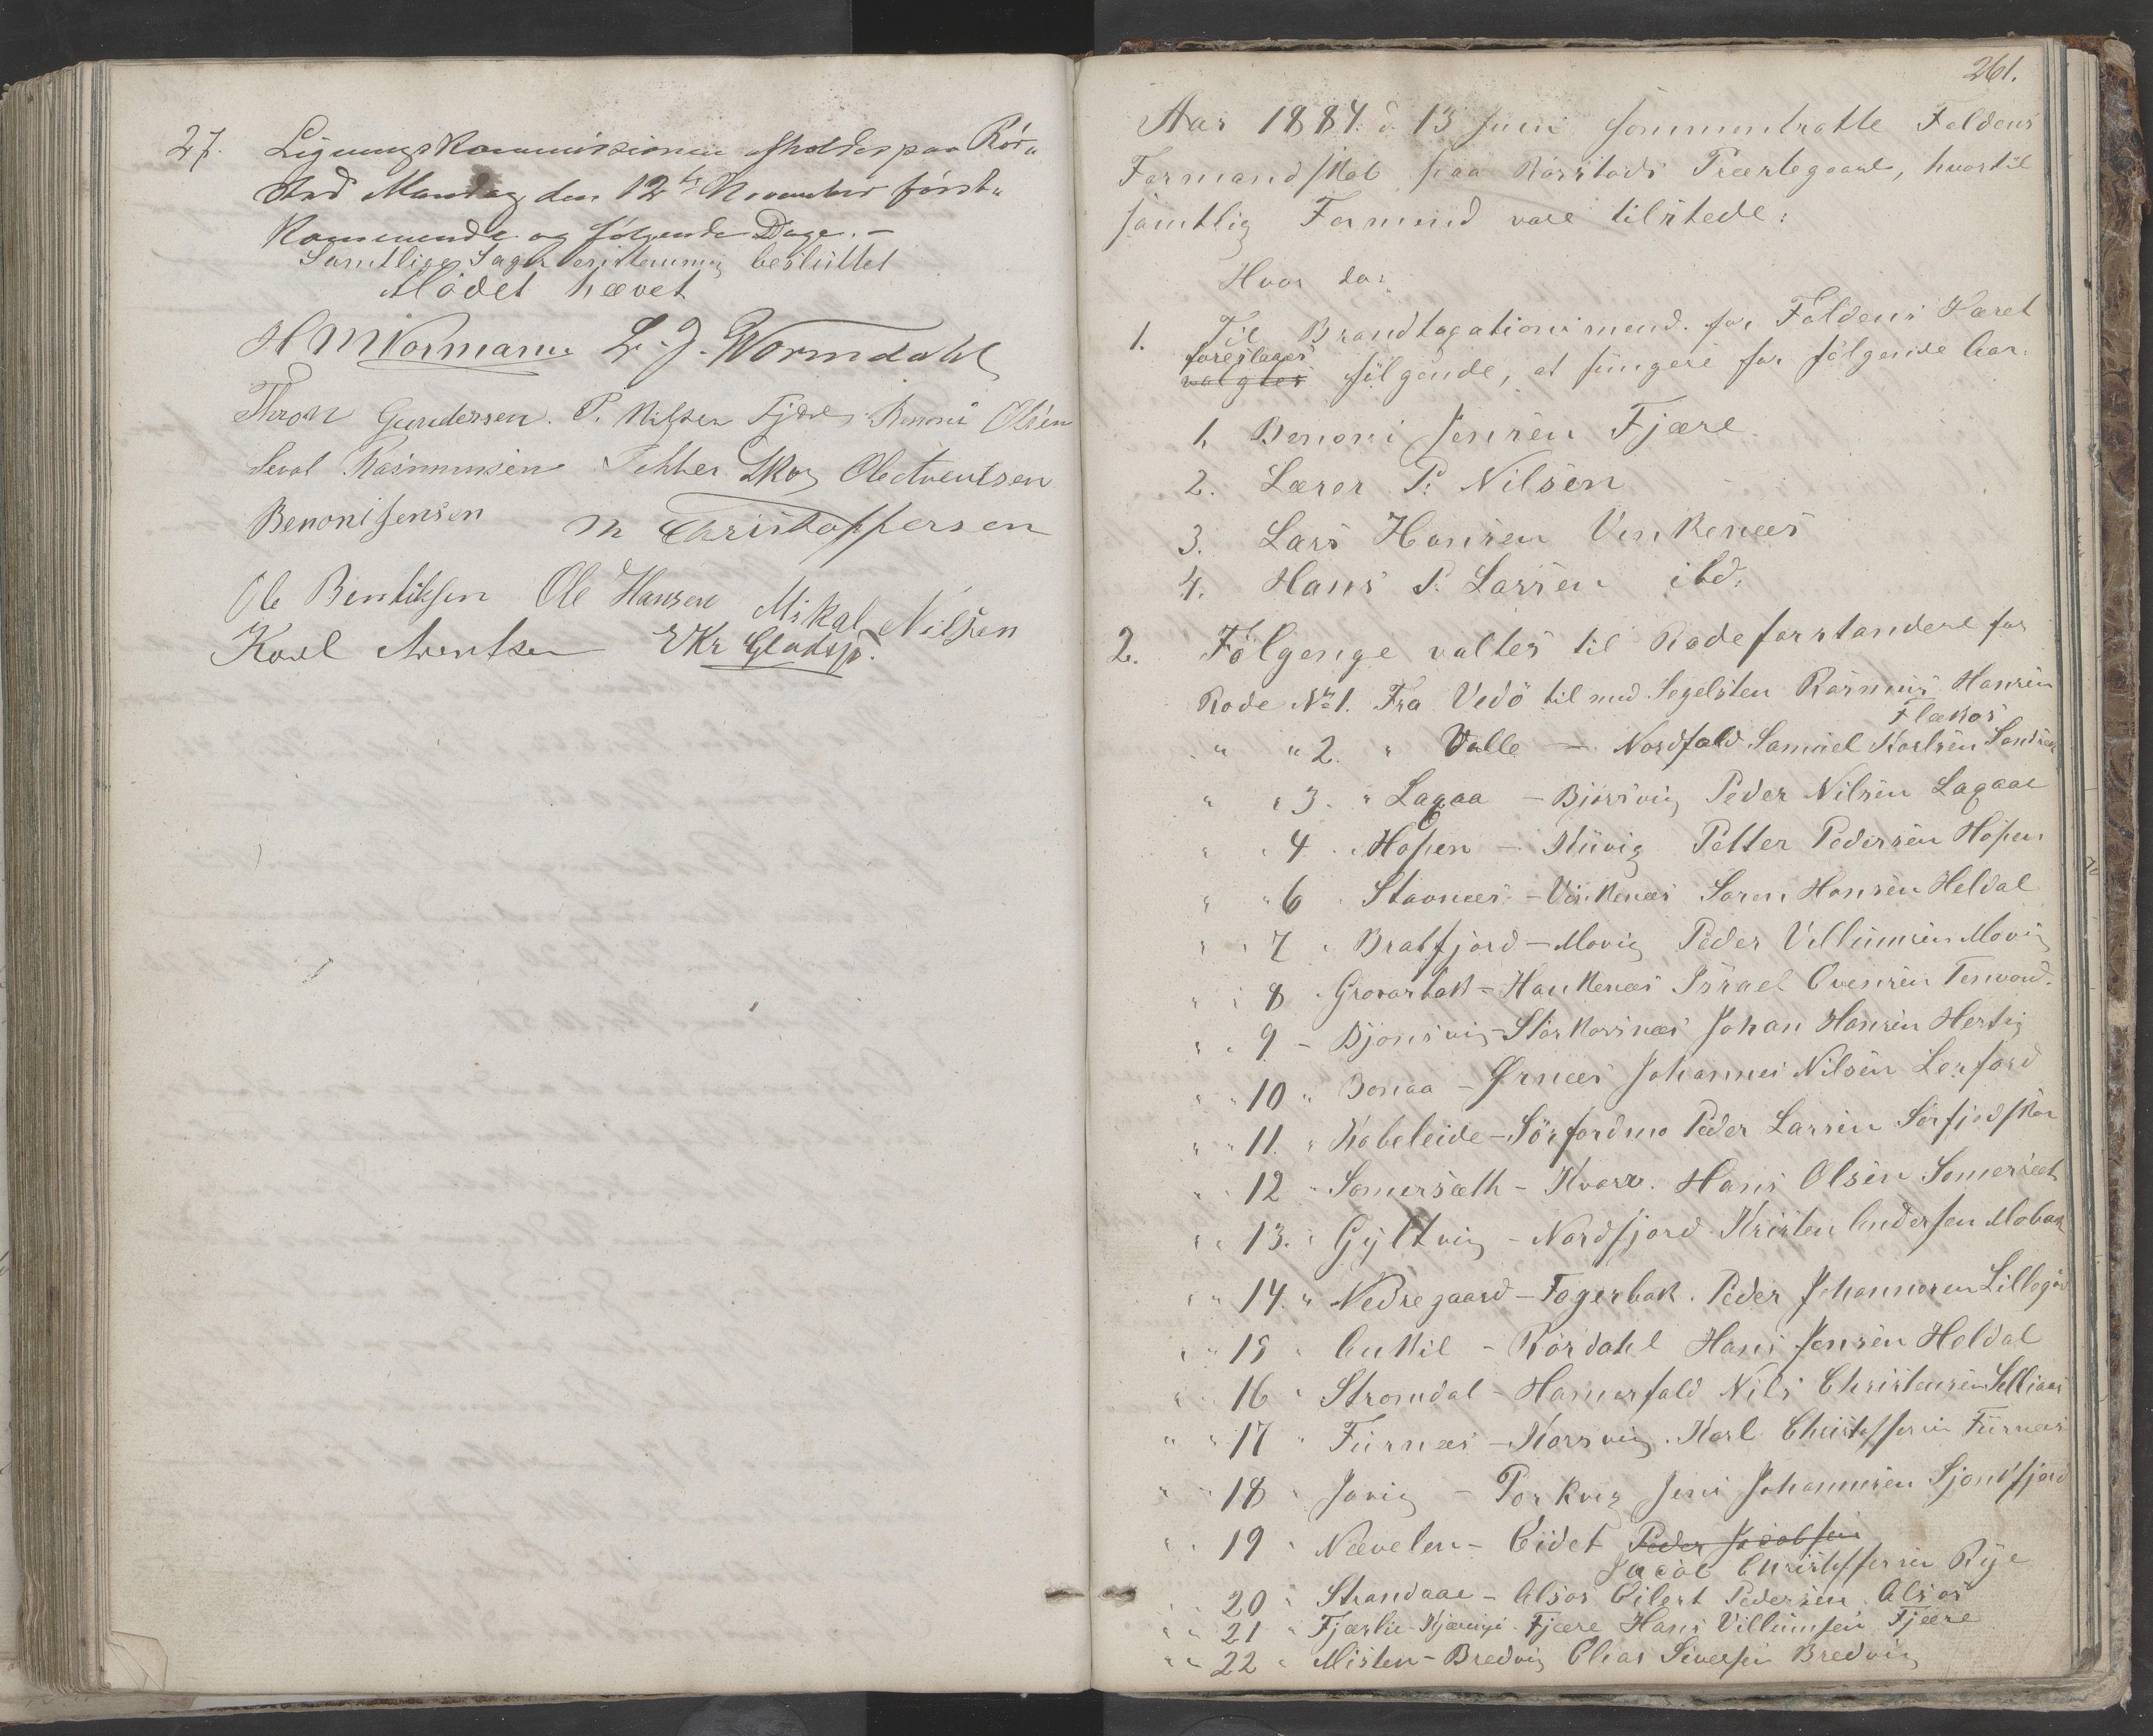 27. Ligningskommissionen afholdes paa Rör„
stad Mandag den 12te November först„
kommende og følgende Dage. –
Samtlige Sager enstemmig besluttet
Mödet hævet
H M Normann L. J. Wormdahl
Thron Gundersen. P. Nilsen Fjære Benoni Olsen
Sevat Rasmussen Petter Skog Ole Arentsen
Benoni Jensen M Christoffersen
Ole Bentiksen Ole Hansen Mikal Nilsen
Karl Arentsen E Kr Gladsjø.
261.
Aar 1884. d. 13 Juni sammentratte Foldens
Formandskab paa Rørstads Præstegaard, hvortil
samtlig Formænd vare tilstede:
Hvor da:
1. Til Brandtagationsmend. for Foldens Hæred
foreslages
valgtes fölgende, at fungere for fölgende Aar.
1. Benoni Jensen Fjære
2. Lærer P. Nilsen
3. Lars Hansen Vinkenæs
4. Hans P. Larsen ibd.
2. Fölgenge valtes til Rodeforstandere for
Rode No 1. Fra Vedö til med Segelsten Rasmus Hansen
Flækos
" " 2. " Valle — Nordfold Samuel Karlsen Sandnæs
" " 3. " Lagaa – Bjørsvig Peder Nilsen Lagaae
" " 4 " Hopen – Kuvig Petter Pedersen Hopen
" " 6 " Stavnæs – Vinkenæs Søren Hansen Heldal
" " 7 " Bratfjord – Movig Peder Villumsen Movig
" " 8 " Grovarbak – Haukenæs Israel Ovensen Tenvand.
" " 9 – Bjonsvig – Storkorsnæs Johan Hansen Hestvig
" " 10 " Bonaa – Ørnæs Johannes Nilsen Lerfard
" " 11. " Kobeleide – Sörfordmo Peder Larsen Sørfjordskar
" " 12 " Somersæth – Kvarv. Hans Olsen Somersæt
" " 13. " Gyltvig – Nordfjord Kristen Andersen Mobak
" " 14. " Nedregaard – Fagerbak. Peder Johannesen Lillegård
" " 15 " Aukil – Rördahl Hans Jensen Heldal
" " 16 " Strømdal – Hamerfald Nils Christensen Selliaas
" " 17 " Furnæs – Korsvig. Karl Christoffersen Furnæs
" " 18 " Javig – Porkvig Jens Johannesen Sjønsfjord
" " 19 " Nævelen – Eidet Peder Jacobsen
Jacob Christoffersen Rye
" " 20 " Strandaae – Alsos Eilert Pedersen Alsos
" " 21 " Fjærlie – Kjæringø – Fjære Hans Villumsen Fjære
" " 22 " Misten – Bredvig Elias Sivertsen Bredvig